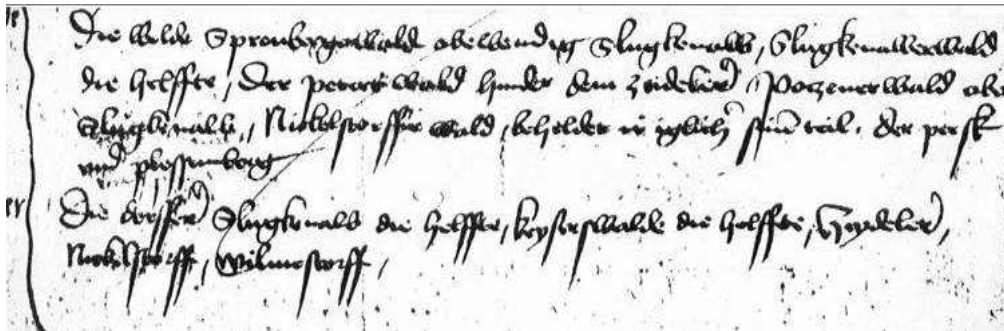 Die welde Spronbergerwalde obewendig Slugkenaw, Slugkenawerwald
die helffte, Der peters wald hinder dem zeideler, Poczenerwald obe
Slugkenaw, Nickelstorffir wald, beheldet ir iglich sine teil. der persk
und plossenberg
Die dorffer Slugkenaw die helffte, keyserswalde die helffte, Zeydeler,
Nickelstorff, Wilmestorff,